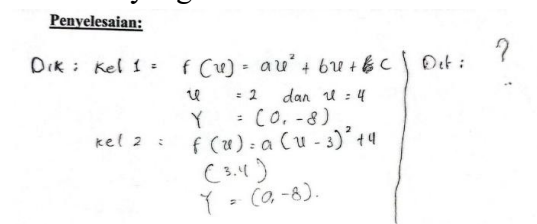 Penyelesaian:
Dik : Kel 1 = f (x) = ax² + bx + c Dit : ?
x = 2 dan x = 4
Y = (0, -8)
kel 2 : f (x) = a (x - 3)² + 4
(3.4)
Y = (0, -8).